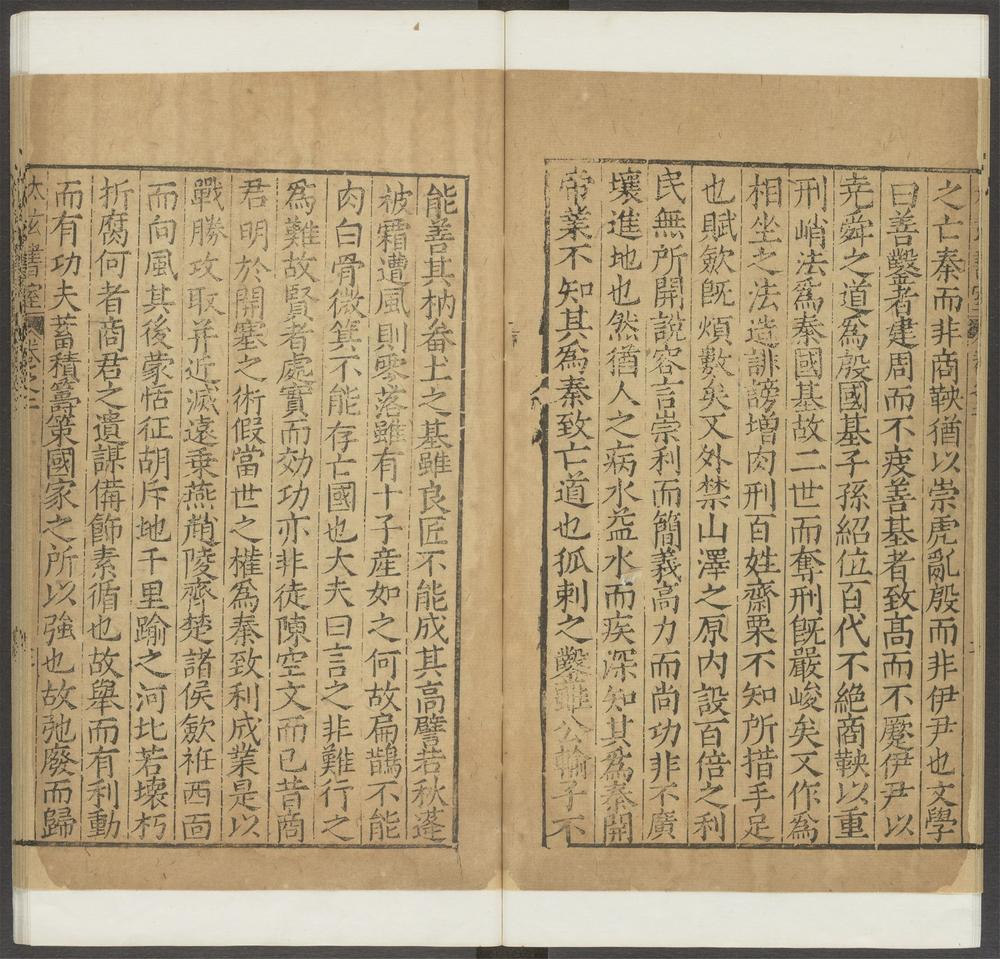 之亡秦而非商鞅猶以崇虎亂殷而非伊尹也文學
曰善鑿者建周而不疲善基者致高而不蹷伊尹以
尭舜之道爲殷國基子孫紹位百代不絶商鞅以重
刑峭法爲秦國基故二世而奪刑旣嚴峻矣又作爲
相坐之法造誹謗增肉刑百姓齋栗不知所措手足
也賦歛旣煩數矣又外禁山澤之原内設百倍之利
民無所開說容言崇利而簡義高力而尚功非不廣
壤進地也然猶人之病水益水而疾深知其爲秦開
帝業不知其爲秦致亡道也狐刺之鑿雖公輸子不
能善其枘畚土之基雖良匠不能成其高譬若秋蓬
被霜遭風則零落雖有十子産如之何故扁鵲不能
肉白骨微箕不能存亡國也大夫曰言之非難行之
爲難故賢者處實而効功亦非徒陳空文而已昔商
君明於開塞之術假當世之權爲秦致利成業是以
戰勝攻取并近滅遠乗燕趙陵齊楚諸侯歛衽西面
而向風其後蒙恬征胡斥地千里踰之河北若壞朽
折腐何者商君之遺謀備飾素循也故舉而有利動
而有功夫蓄積籌策國家之所以強也故弛廢而歸
太玄書室 卷之二